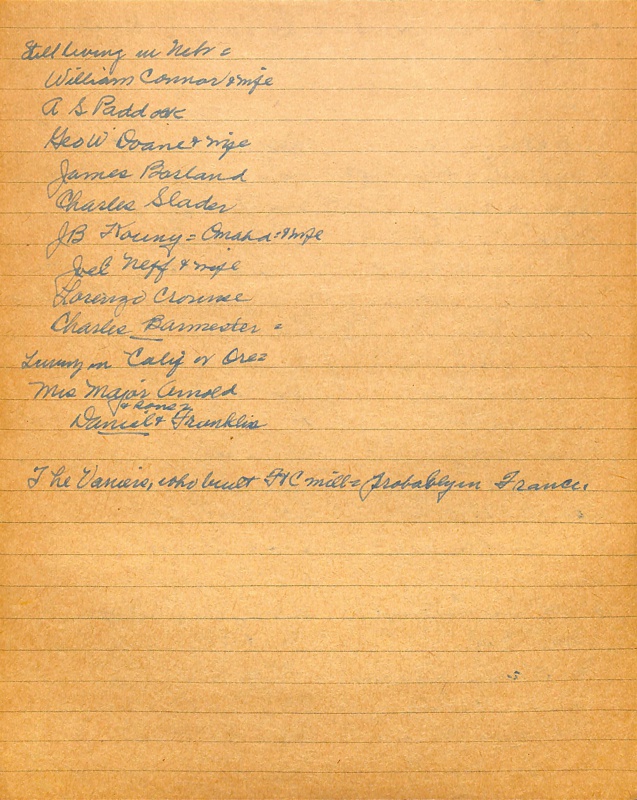 Still living in Nebr =
William Connor & wife
A S Paddock
Geo W Doane & wife
James Borland
Charles Slader
JB Kouny = Omaha = & wife
Joel Neff & wife
Lorenzo Crounse
Charles Barmester =
Living in Calif or Ore =
Mrs Major Arnold
& sons =
Daniel & Franklin
The Vaniers, who built Ft C mill = Probably in France.